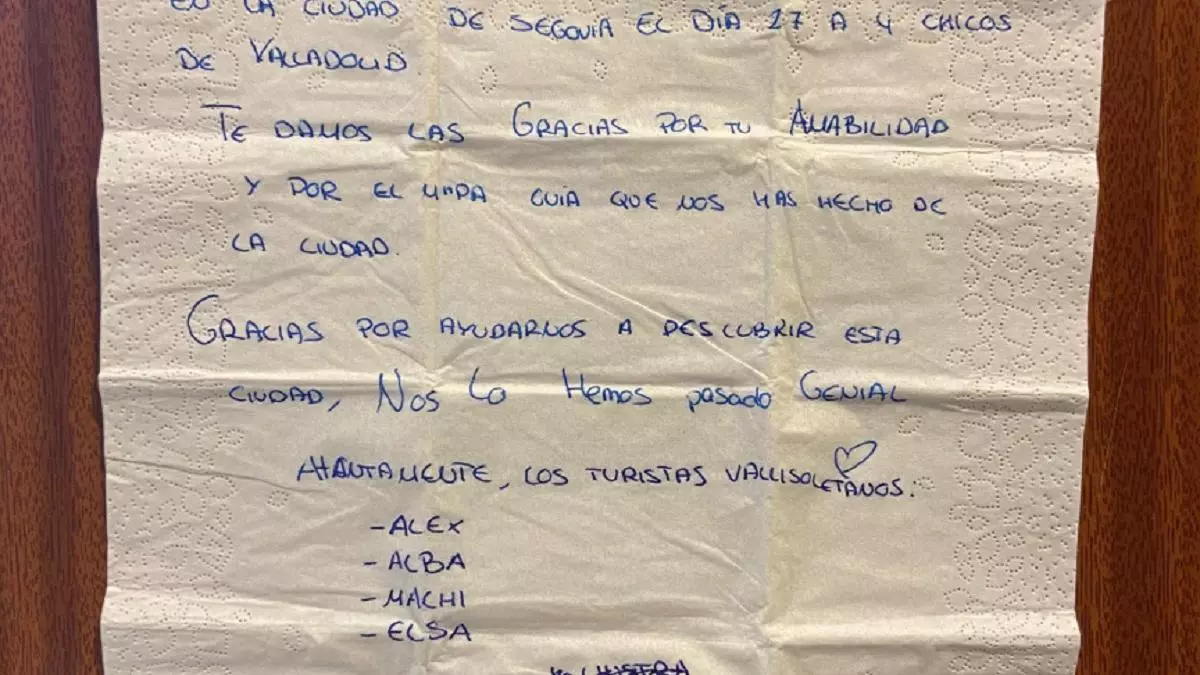 EN LA CIUDAD DE SEGOVIA EL DÍA 27 A 4 CHICOS
DE VALLADOLID.
TE DAMOS LAS GRACIAS POR TU AMABILIDAD
Y POR EL MAPA GUÍA QUE NOS HAS HECHO DE
LA CIUDAD.
GRACIAS POR AYUDARNOS A DESCUBRIR ESTA
CIUDAD, Nos Lo Hemos pasado GENIAL
ATENTAMENTE, LOS TURISTAS VALLISOLETANOS:
- ALEX
- ALBA
- MACHI
- ELSA